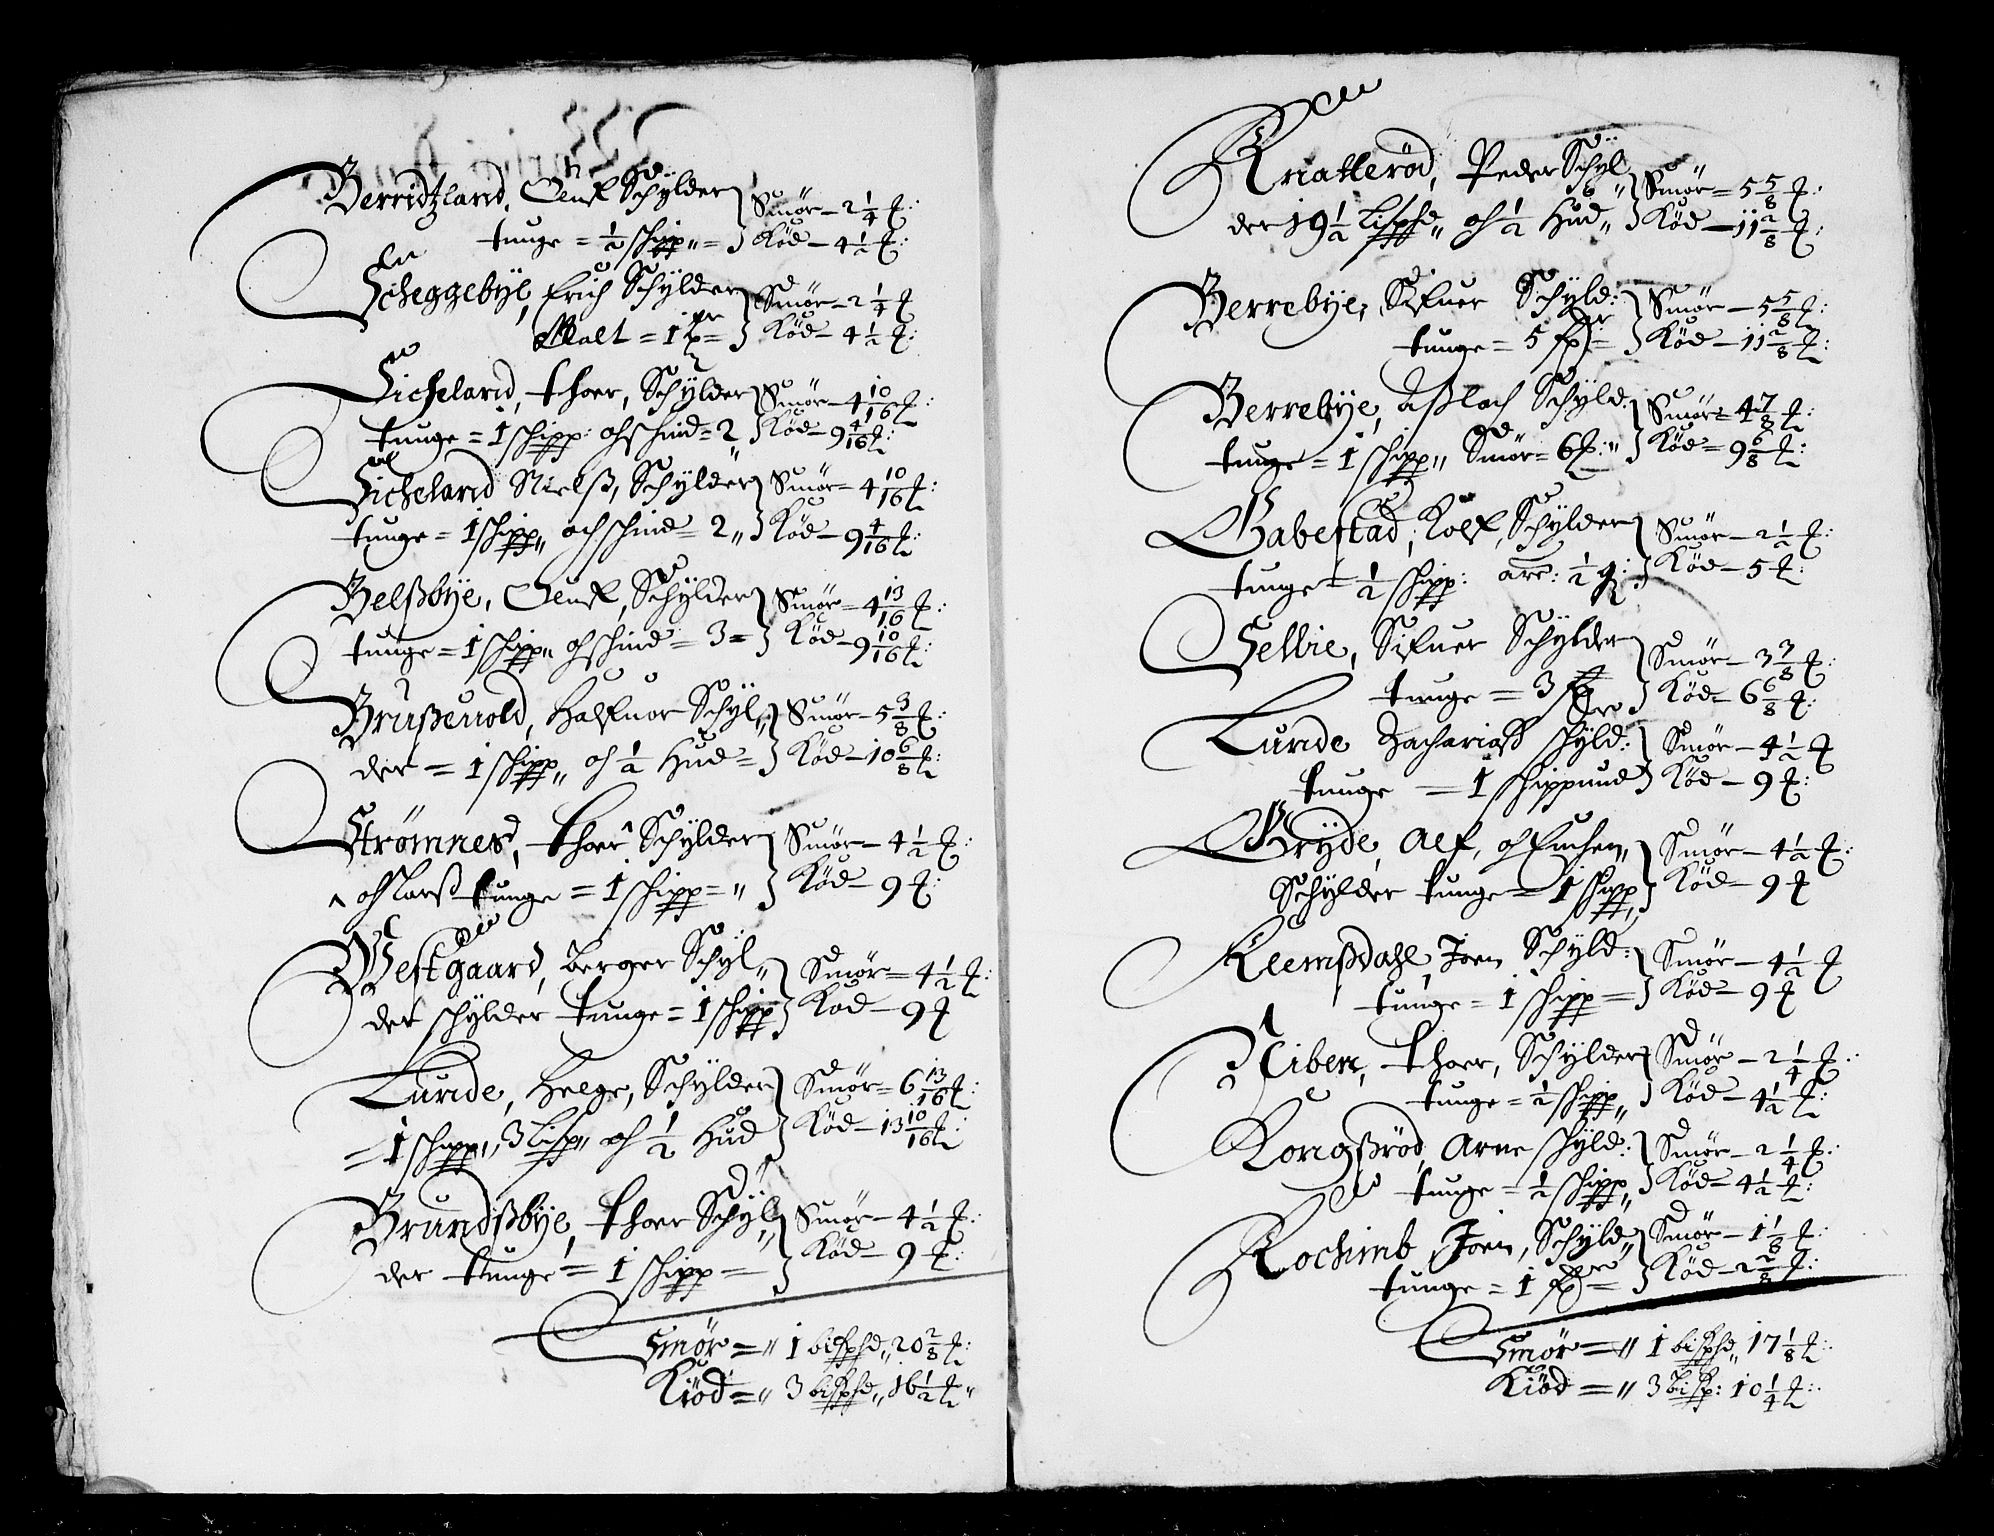 Berridtzland, Oluf Schylder } Smör – 2 1/4 ℔:
tunge = 1/2 schipp„ = } Kiöd – 4 1/2 ℔:
Scheggebÿe, Erich Schylder } Smör – 2 1/4 ℔
Malt = 1 = } Kiöd – 4 1/2 ℔:
Sicheland, thoer, Schylder } Smör – 4 10/16 ℔:
tunge = 1 schipp: och schind = 2„ } Kiöd – 9 4/16 ℔:
Sicheland Nielß, Schylder } Smör – 4 10/16 ℔:
tunge = 1 schipp„ och schind = 2„ } Kiöd – 9 4/16 ℔:
Belßbÿe, Oluf, Schylder } Smör – 4 13/16 ℔:
tunge = 1 schipp„ och schind = 3 = } Kiöd – 9 10/16 ℔:
Brußeuold, Halfuor Schyl„ } Smör – 5 3/8 ℔:
der = 1 schipp„ och 1/2 Hud = } Kiöd – 10 6/8 ℔:
Strömnes, thoer ^ Schylder } Smör – 4 1/2 ℔:
^ och Larß tunge = 1 schipp = „ } Kiöd – 9 ℔:
Westgaard, Berger Schyl„ } Smör – 4 1/2 ℔:
der schylder tunge = 1 schipp } Kiöd – 9 ℔
Lunde, Helge, Schylder } Smör – 6 13/16 ℔:
= 1 schipp„ 3 lisp„ och 1/2 Hud } Kiöd – 13 10/16 ℔:
Brundßbÿe, thoer Schyl„ } Smör – 4 1/2 ℔:
der tunge = 1 schipp = } Kiöd – 9 ℔:
Smör = „ 1 bißphd„ 20 2/8 ℔:
Kiöd = „ 3 bißphd„ 16 1/2 ℔„
Kriatleröd, Peder Schyl„ } Smör – 5 5/8 ℔:
der 19 1/2 lispd„ och 1/2 Hud„ } Kiöd – 11 2/8 ℔:
Berrebÿe, Sifuer Schyld: } Smör – 5 5/8 ℔:
tunge = 5 = } Kiöd – 11 2/8 ℔:
Berrebÿe, Aßlach Schyld: } Smör – 4 7/8 ℔:
tunge = 1 schipp„ Smör = 6 ℔:„ } Kiöd = 9 6/8 ℔:
Gabestad, Rolf, Schylder } Smör – 2 1/2 ℔:
tunge = 1/2 schipp: 1/2 } Kiöd – 5 ℔:
Selbie, Sifuer Schylder } Smör – 3 3/8 ℔:
tunge = 3 } Kiöd – 6 6/8 ℔:
Lunde Zachariaß schyld: } Smör – 4 1/2 ℔
tunge = 1 schippund } Kiöd – 9 ℔:
Grÿde, Alf, och Enchen, } Smör – 4 1/2 ℔:
Schylder tunge = 1 schipp„ } Kiöd – 9 ℔
Kleemßdahl, Joen Schyld: } Smör – 4 1/2 ℔
tunge = 1 schipp = } Kiöd – 9 ℔
Riben, thoer, Schylder } Smör – 2 1/4 ℔:
tunge = 1/2 schipp„ } Kiöd – 4 1/2 ℔:
Kongßröd, Arne schyld: } Smör – 2 1/4 ℔:
tunge = 1/2 schipp„ } Kiöd – 4 1/2 ℔:
Kochimb, Joen, Schyld„ } Smör – 1 1/8 ℔:
tunge = 1 = } Kiöd – 2 2/8 ℔:
Smör = „ 1 bißphd„ 17 1/8 ℔:
Kiöd = „ 3 bißp: 10 1/4 ℔: